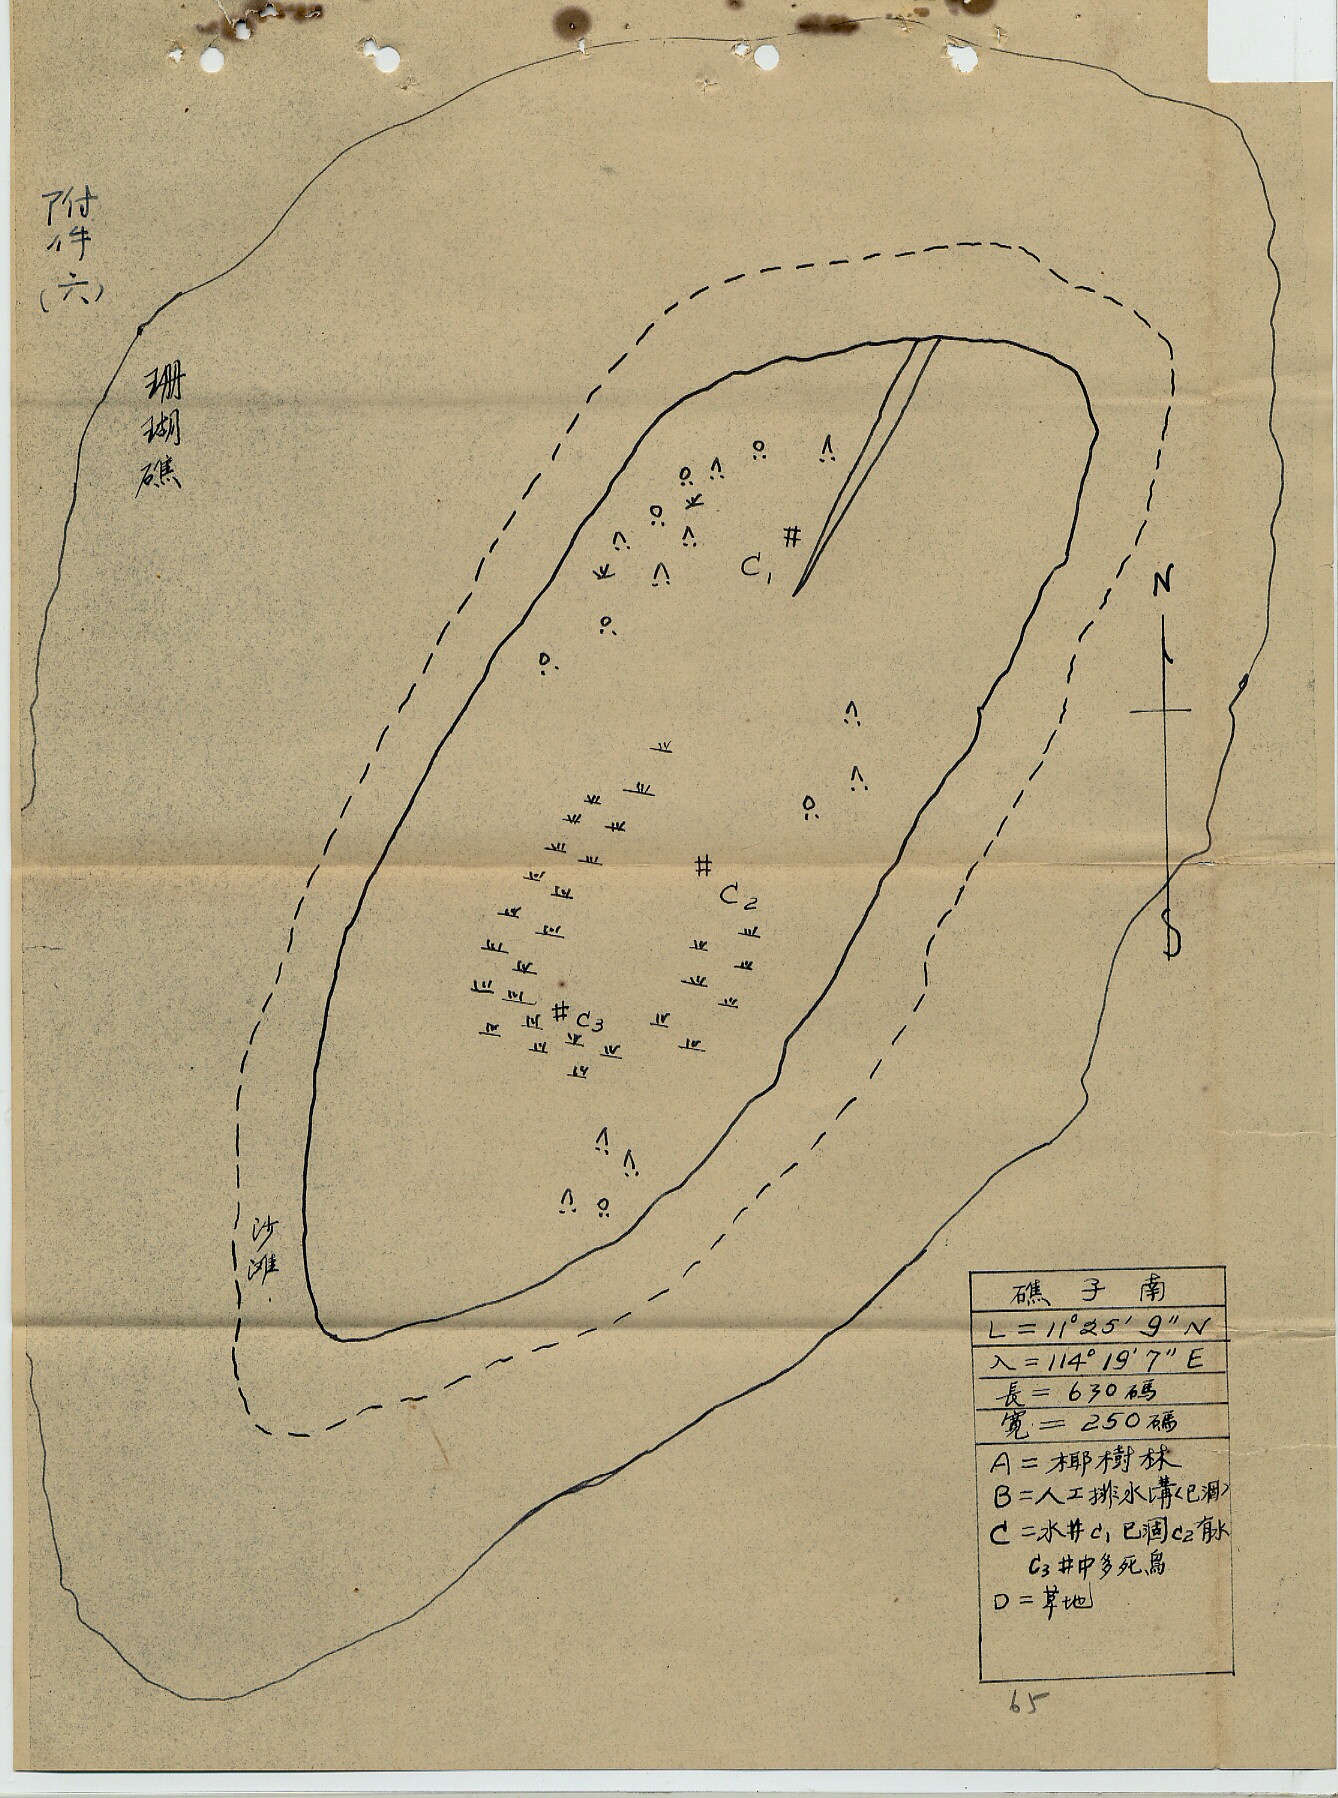 附件(六)
珊瑚礁
N
C1
C2
S
C3
沙灘.
礁子南
L=11°25'9"N
λ=114°19'7"E
長=630碼
寬=250碼
A=椰樹林
B=人工排水溝(已涸)
C=水井C1已涸C2有水
C3井中多死鳥
D=草地
65